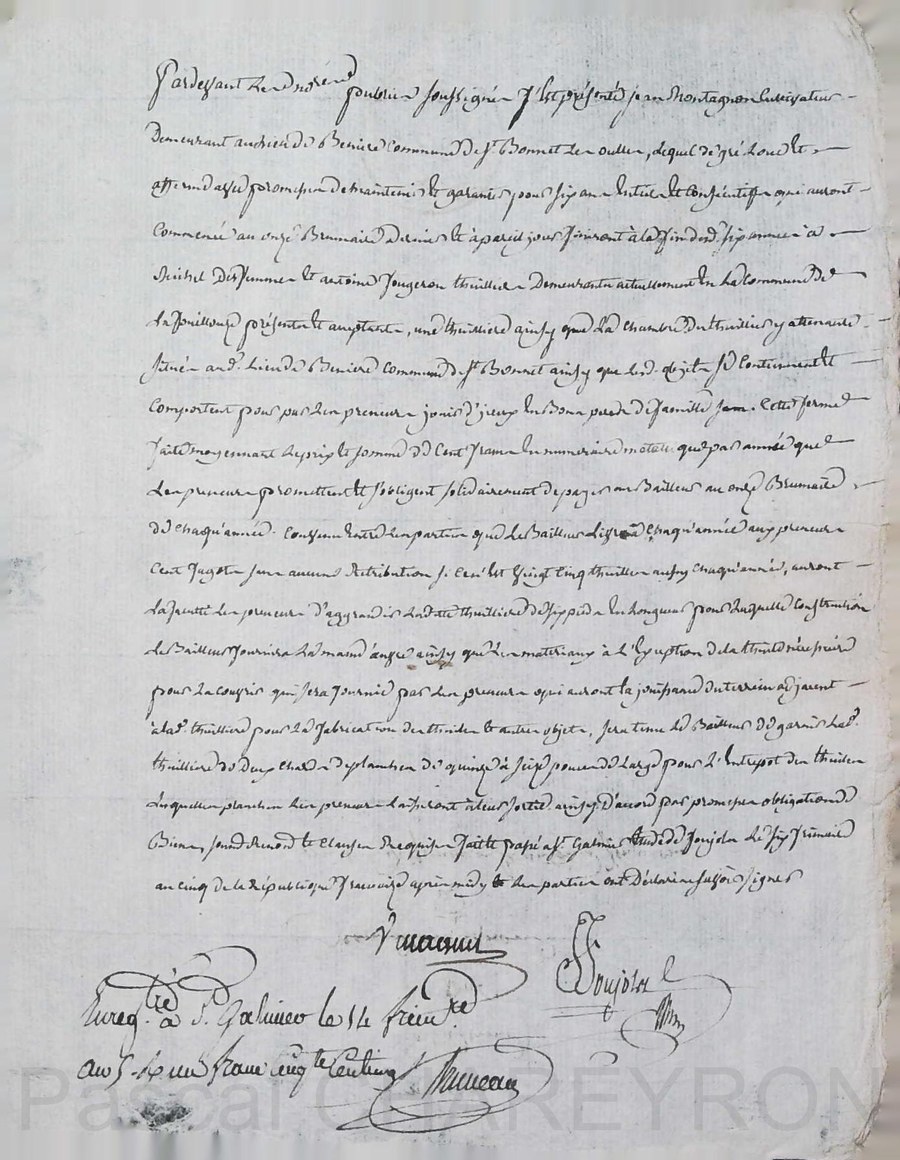 Pardevant le notaire
public soussigné s'est présenté jean Montagnon cultivateur
Demeurant au lieu de commune de St Bonnet les oulles, lequel de gré loue et
afferme avec promesse de maintenir et garantir pour six ans entiers et consécutifs qui auront
commencé au onze Brumaire dernier et à pareil jour finiront à la fin desd. six années à
Michel et antoine fougeron thuilliers Demeurants actuellement en la commune de
La fouillouze présents et acceptants, une thuilliere ainsy que la chambre du thuillier y attenante
située aud. lieu de commune de St Bonnet ainsy que lesd. objets se contiennent et
comportent pour par les preneurs jouir d'jceux en Bons peres de famille Cette ferme
faite moyennant le prix et somme de cent francs en numeraire metallique par année que
Les preneurs promettent et s'obligent solidairement de payer au Bailleur au onze Brumaire
de chaqu'année. Convenu entre les parties que le Bailleur chaqu'année aux preneurs
cent fagots sans aucune retribution si ce n'est vingt cinq thuilles aussy chaqu'année, auront
la faculté les preneurs d'aggrandir lad. thuilliere de six pieds en longueur pour laquelle construction
le Bailleur fournira la main d'œuvre ainsy que les materiaux à l'exception de la thuile nécessaire
pour la couvrir qui sera fournie par les preneurs qui auront la jouissance du terrein adjacent
à lad. thuilliere pour la fabrication des thuiles et autres objets, sera tenu le Bailleur de garnir lad.
thuilliere de Deux chars de planches de quinze à seize pouces de large pour l'entrepot des thuiles
lesquelles planches les preneurs laisseront à leur sortie ainsy d'accord par promesses obligation de
Biens, soumissions, renonc. et clauses requises fait et passé à St Galmier étude de Poujols le six frimaire
an cinq de la république françoise après midy et les parties ont Déclaré ne savoir signer
Poujols
Enreg.tré à St Galmier le 14 frim.re
an 5. R. un franc cinq.te centimes
Pascal CHAREYRON